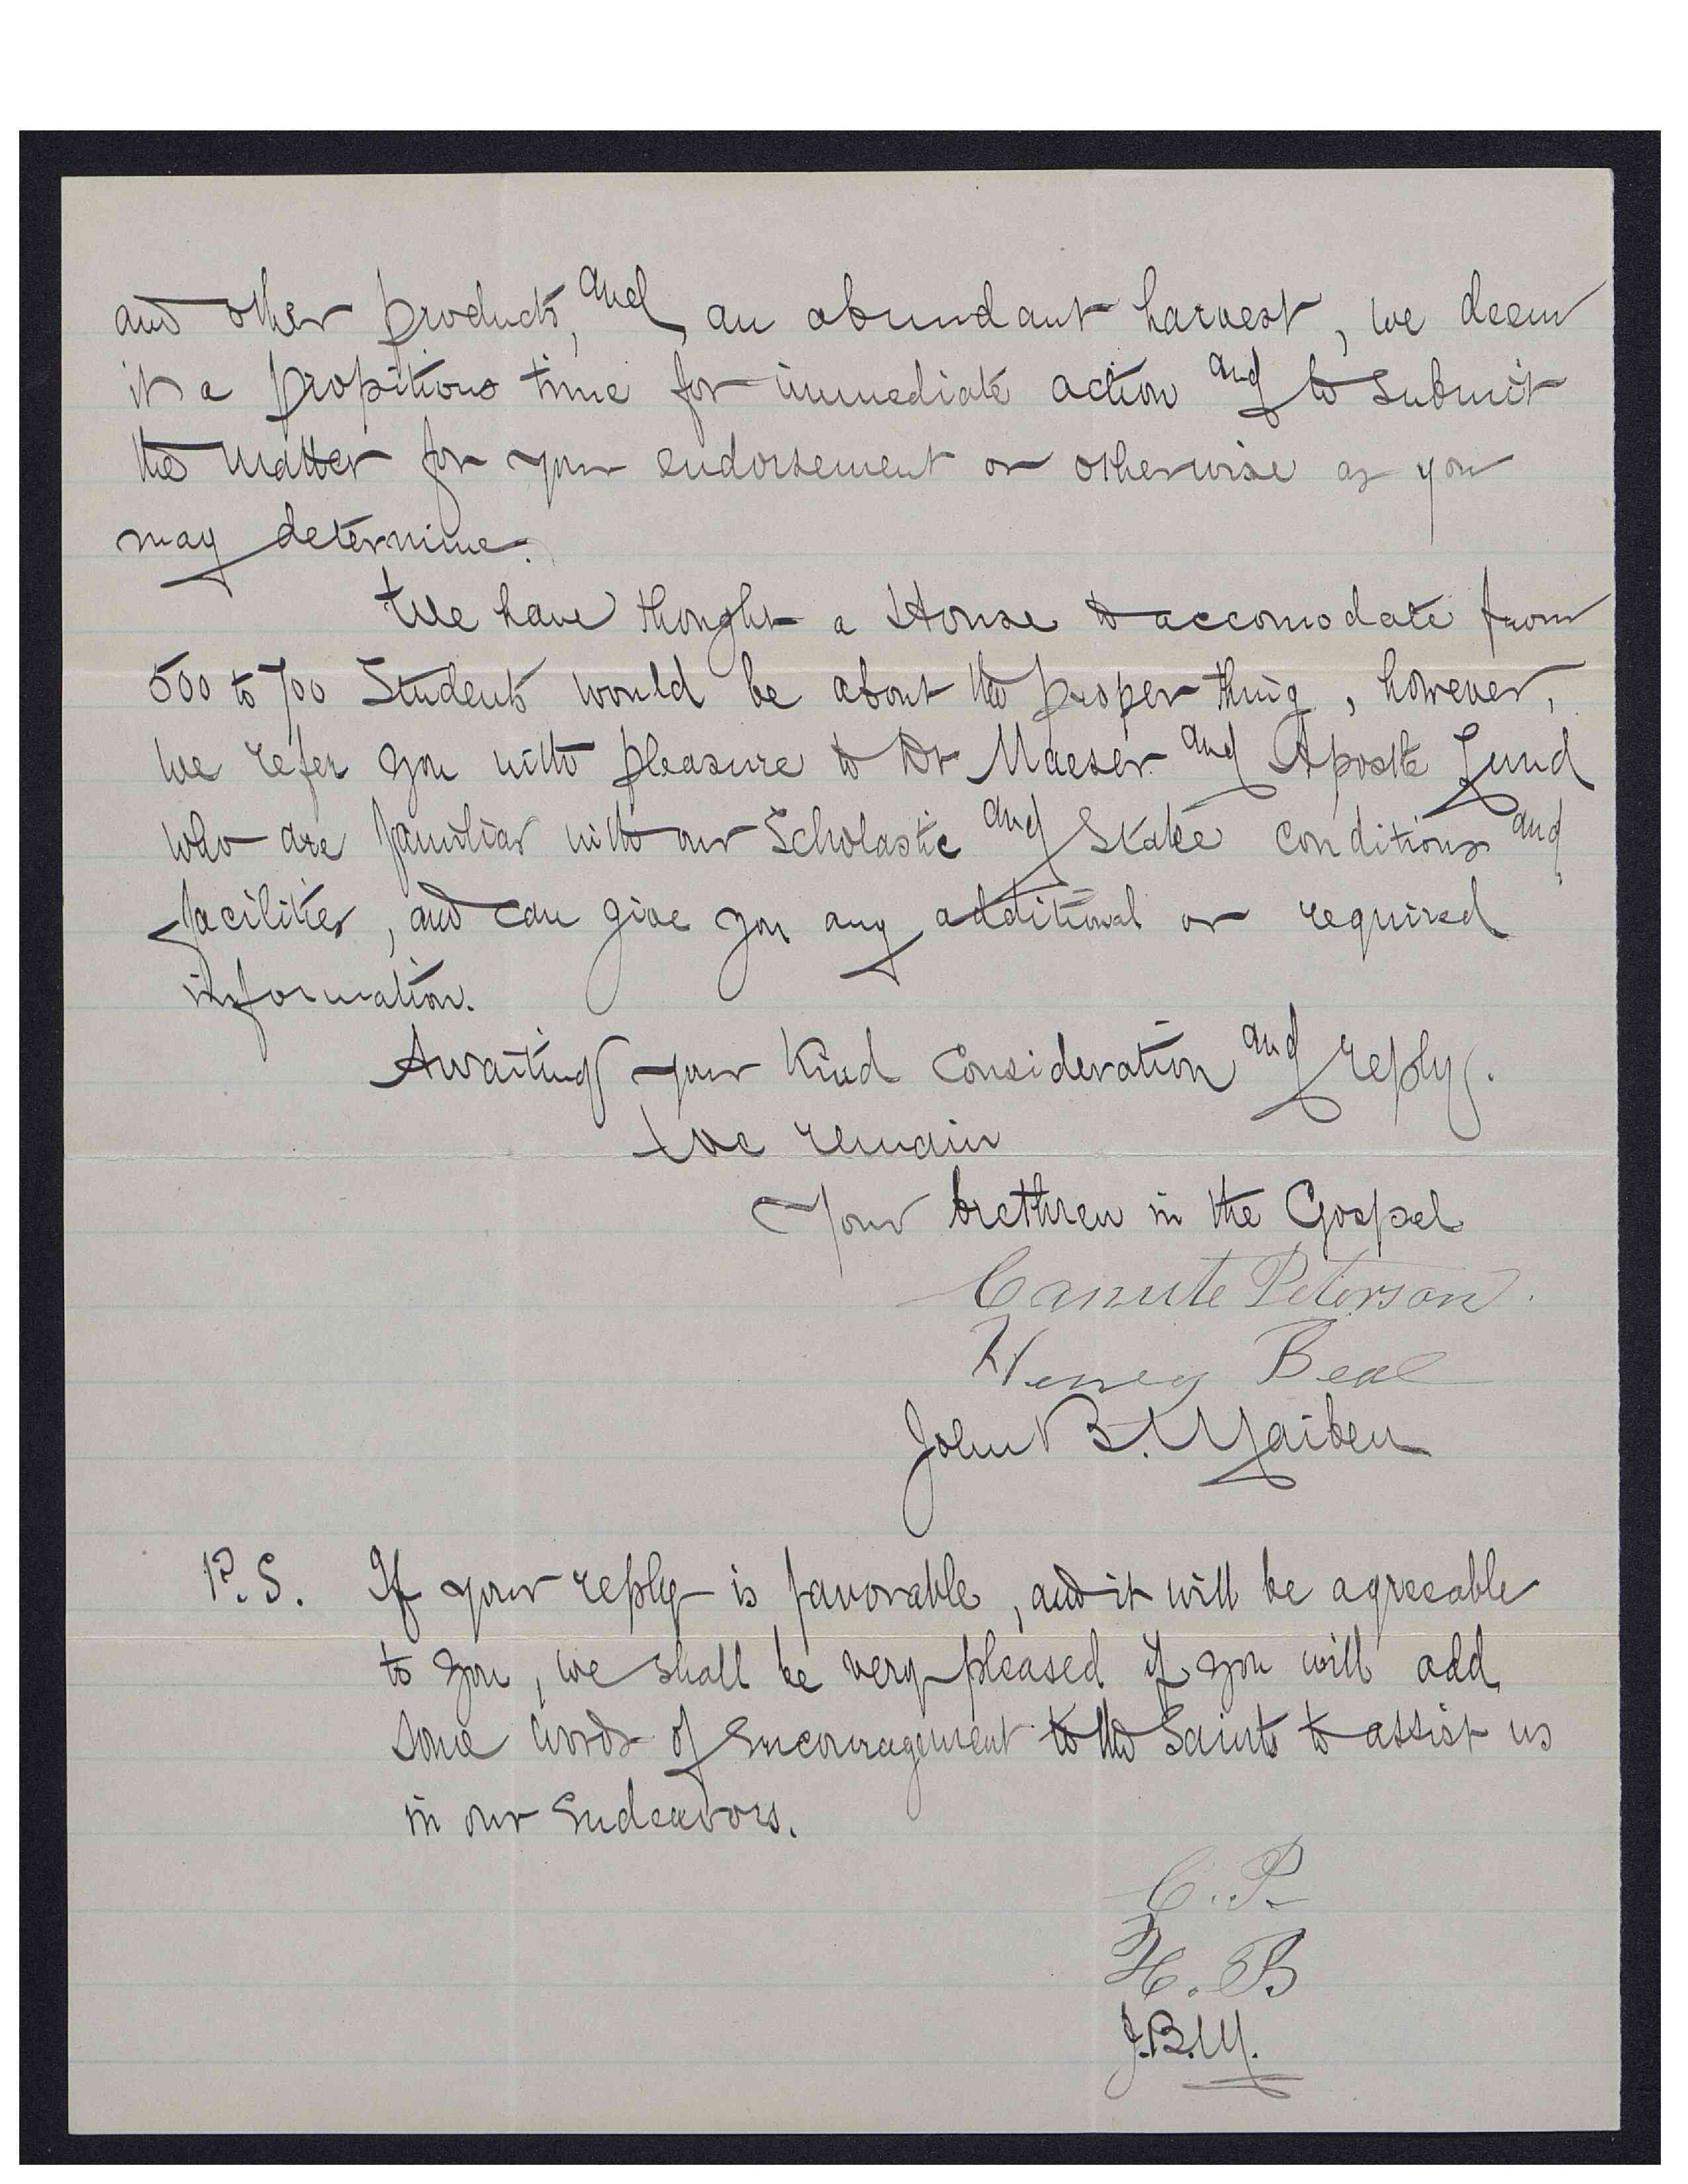 and other products, and an abundant harvest, we deem
it a propitious time for immediate action and to submit
the matter for your endorsement or otherwise as you
may determine.
We have thought a House to accomodate from
500 to 700 Students would be about the proper thing, however,
we refer you with pleasure to Dr Maeser and Apostle Lund
who are familiar with our Scholastic and Stake conditions and
facilities, and can give you any additional or required
information.
Awaiting your kind consideration and reply.
We remain
Your brethren in the Gospel
Canute Peterson.
Henry Beal
John B. Maiben
P.S. If your reply is favorable, and it will be agreeable
to you, we shall be very pleased if you will add
some words of encouragement to the Saints to assist us
in our Endeavors.
C. P.
H. B
J.B.M.